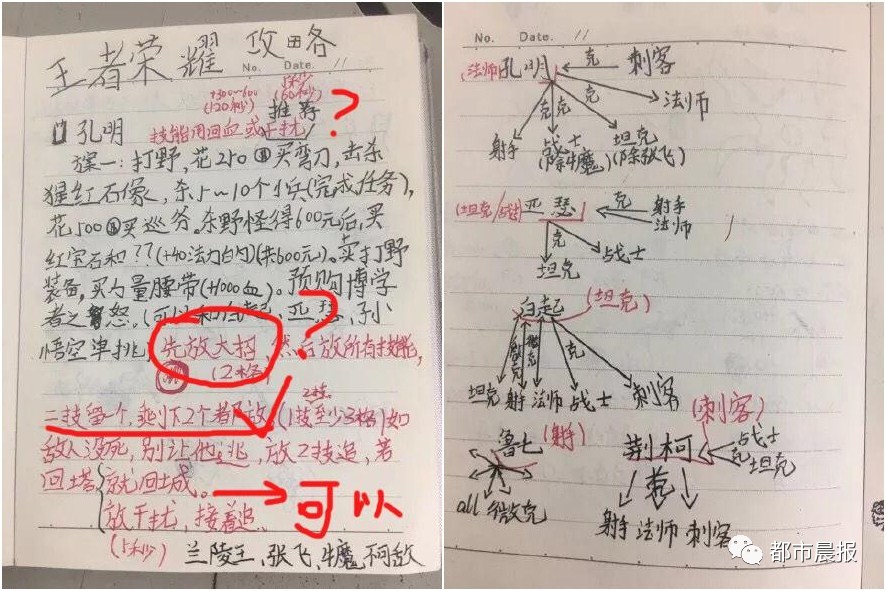 王者荣耀 攻略
No. Date. 11
+300~600
(120秒)
(60秒)
推荐
?
孔明 技能用回血或干扰
方案一:打野,花250买弯刀,击杀
猩红石像,杀5~10个小兵(完成任务),
花500买巡务,杀野怪得600元后,买
红宝石和??(+40法力白内)(共600元)。卖打野
装备,买力量腰带(+1000血)。预购博学
者之怒。(可以和白起,亚瑟,孙
悟空单挑,先放大招,然后放所有技能,
?
(2格)
2技
二技留一个,剩下2个都放(1技至少3格)如
敌人没死,别让他逃,放2技追,若
回塔 就回城。
可以
放干扰,接着追。
(15秒)
兰陵王、张飞、牛魔,不敌
No. Date. 11
(法师)孔明 克 刺客
克 克 克
法师
射手 战士 坦克
(除牛魔) (除张飞)
(坦克/战士)亚瑟 克 射手
法师
克
坦克 战士
白起 (坦克)
微克 微克 克
坦克 射手 法师 战士 刺客
鲁七 (射手)
all 微克
荆柯 (刺客)
克 战士
坦克
克
射手 法师 刺客
都市晨报